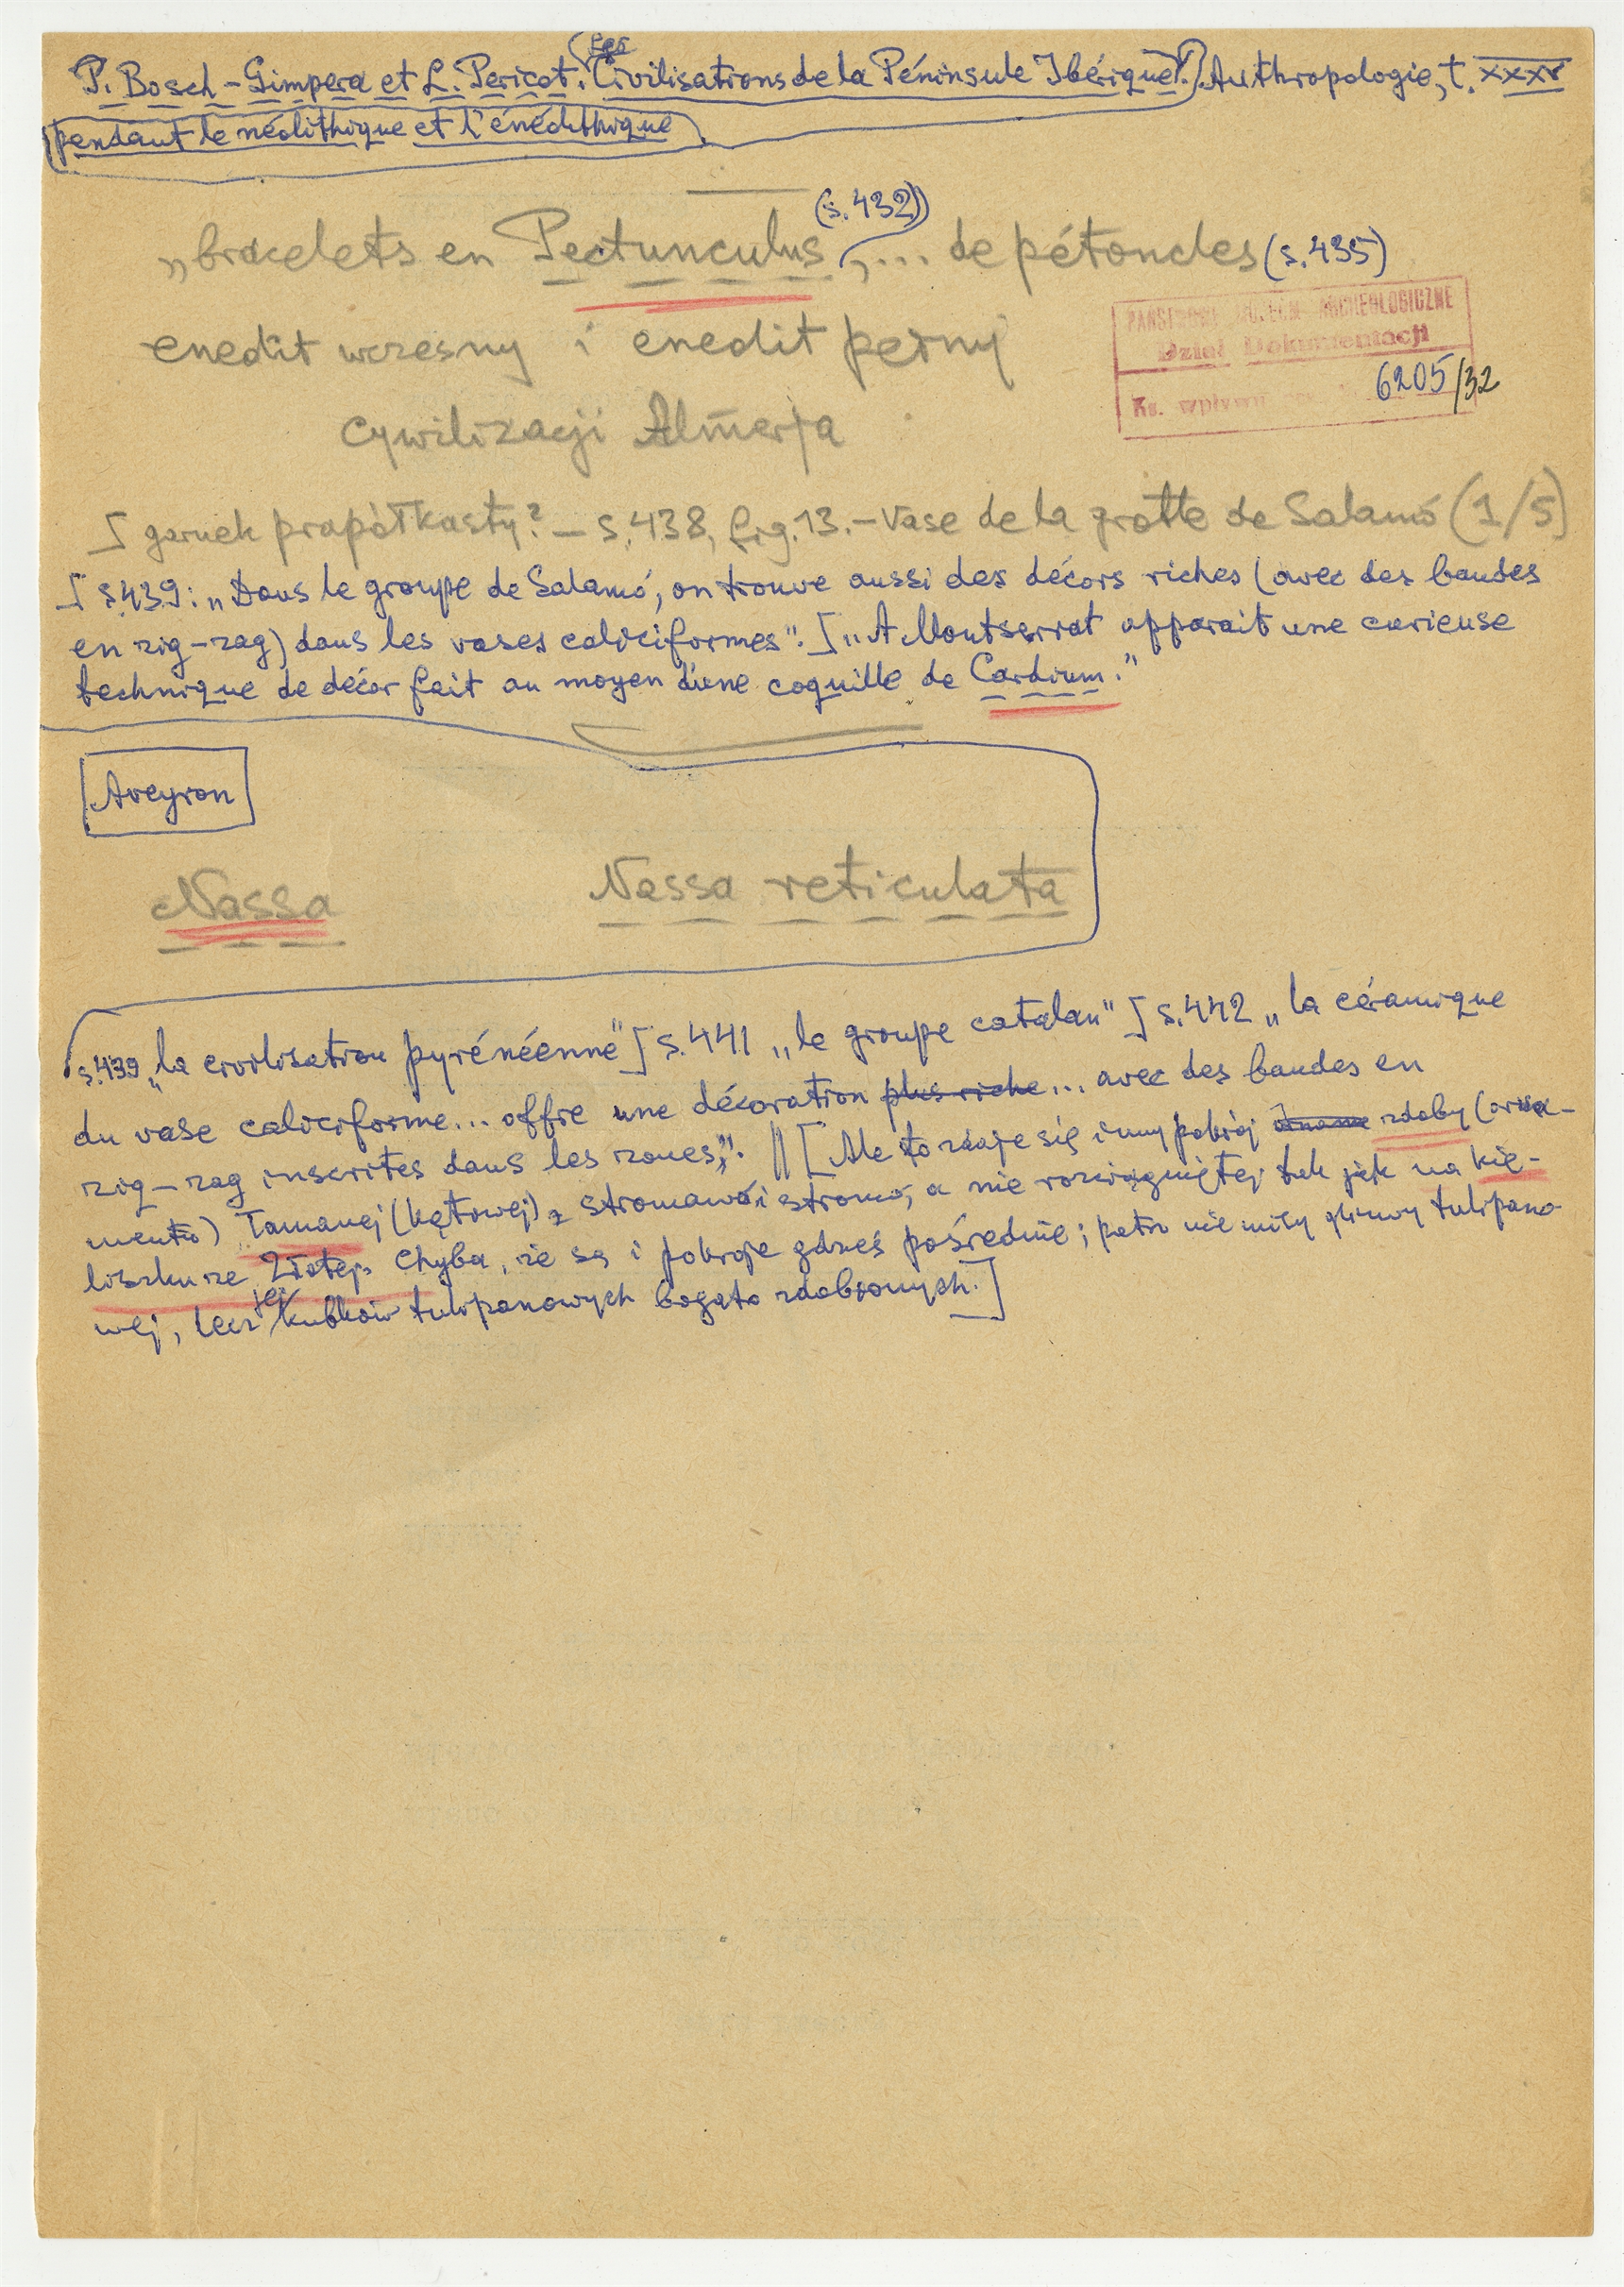 P. Bosch-Gimpera et L. Pericot: Les Civilisations de la Péninsule Ibérique. Anthropologie, t. XXXV
pendant le néolithique et l'énéolithique
(s. 432)
„bracelets en Pectunculus, ... de pétoncles (s. 435)
PAŃSTWOWE MUZEUM ARCHEOLOGICZNE
Dział Dokumentacji
Ks. wpływu 6205/32
enedit wczesny i enedit pełny
cywilizacji Almerja
garnek prapółkasty? – s. 438, fig. 13. – Vase de la grotte de Salamó (1/5)
s. 439: „Dans le groupe de Salamó, on trouve aussi des décors riches (avec des bandes
en zig-zag) dans les vases caliciformes". „A Montserrat apparait une curieuse
technique de décor fait au moyen d'une coquille de Cardium."
Aveyron
Nassa Nassa reticulata
s. 439 „la civilisation pyrénéenne" s. 441 „le groupe catalan" s. 442 „la céramique
du vase caliciforme... offre une décoration plus riche... avec des bandes en
zig-zag inscrites dans les zones". || [Ale to zdaje się inny pokrój zdoby (orna-
mentu) łamanej (kątowej) stromawo i stromo, a nie rozciągniętej tak jak na kie-
liszku ze Złotej. Chyba, że są i pokroje gdzieś pośrednie; patrz nie niby gliny tulipano-
wej, lecz tej kubków tulipanowych bogato zdobionych.]